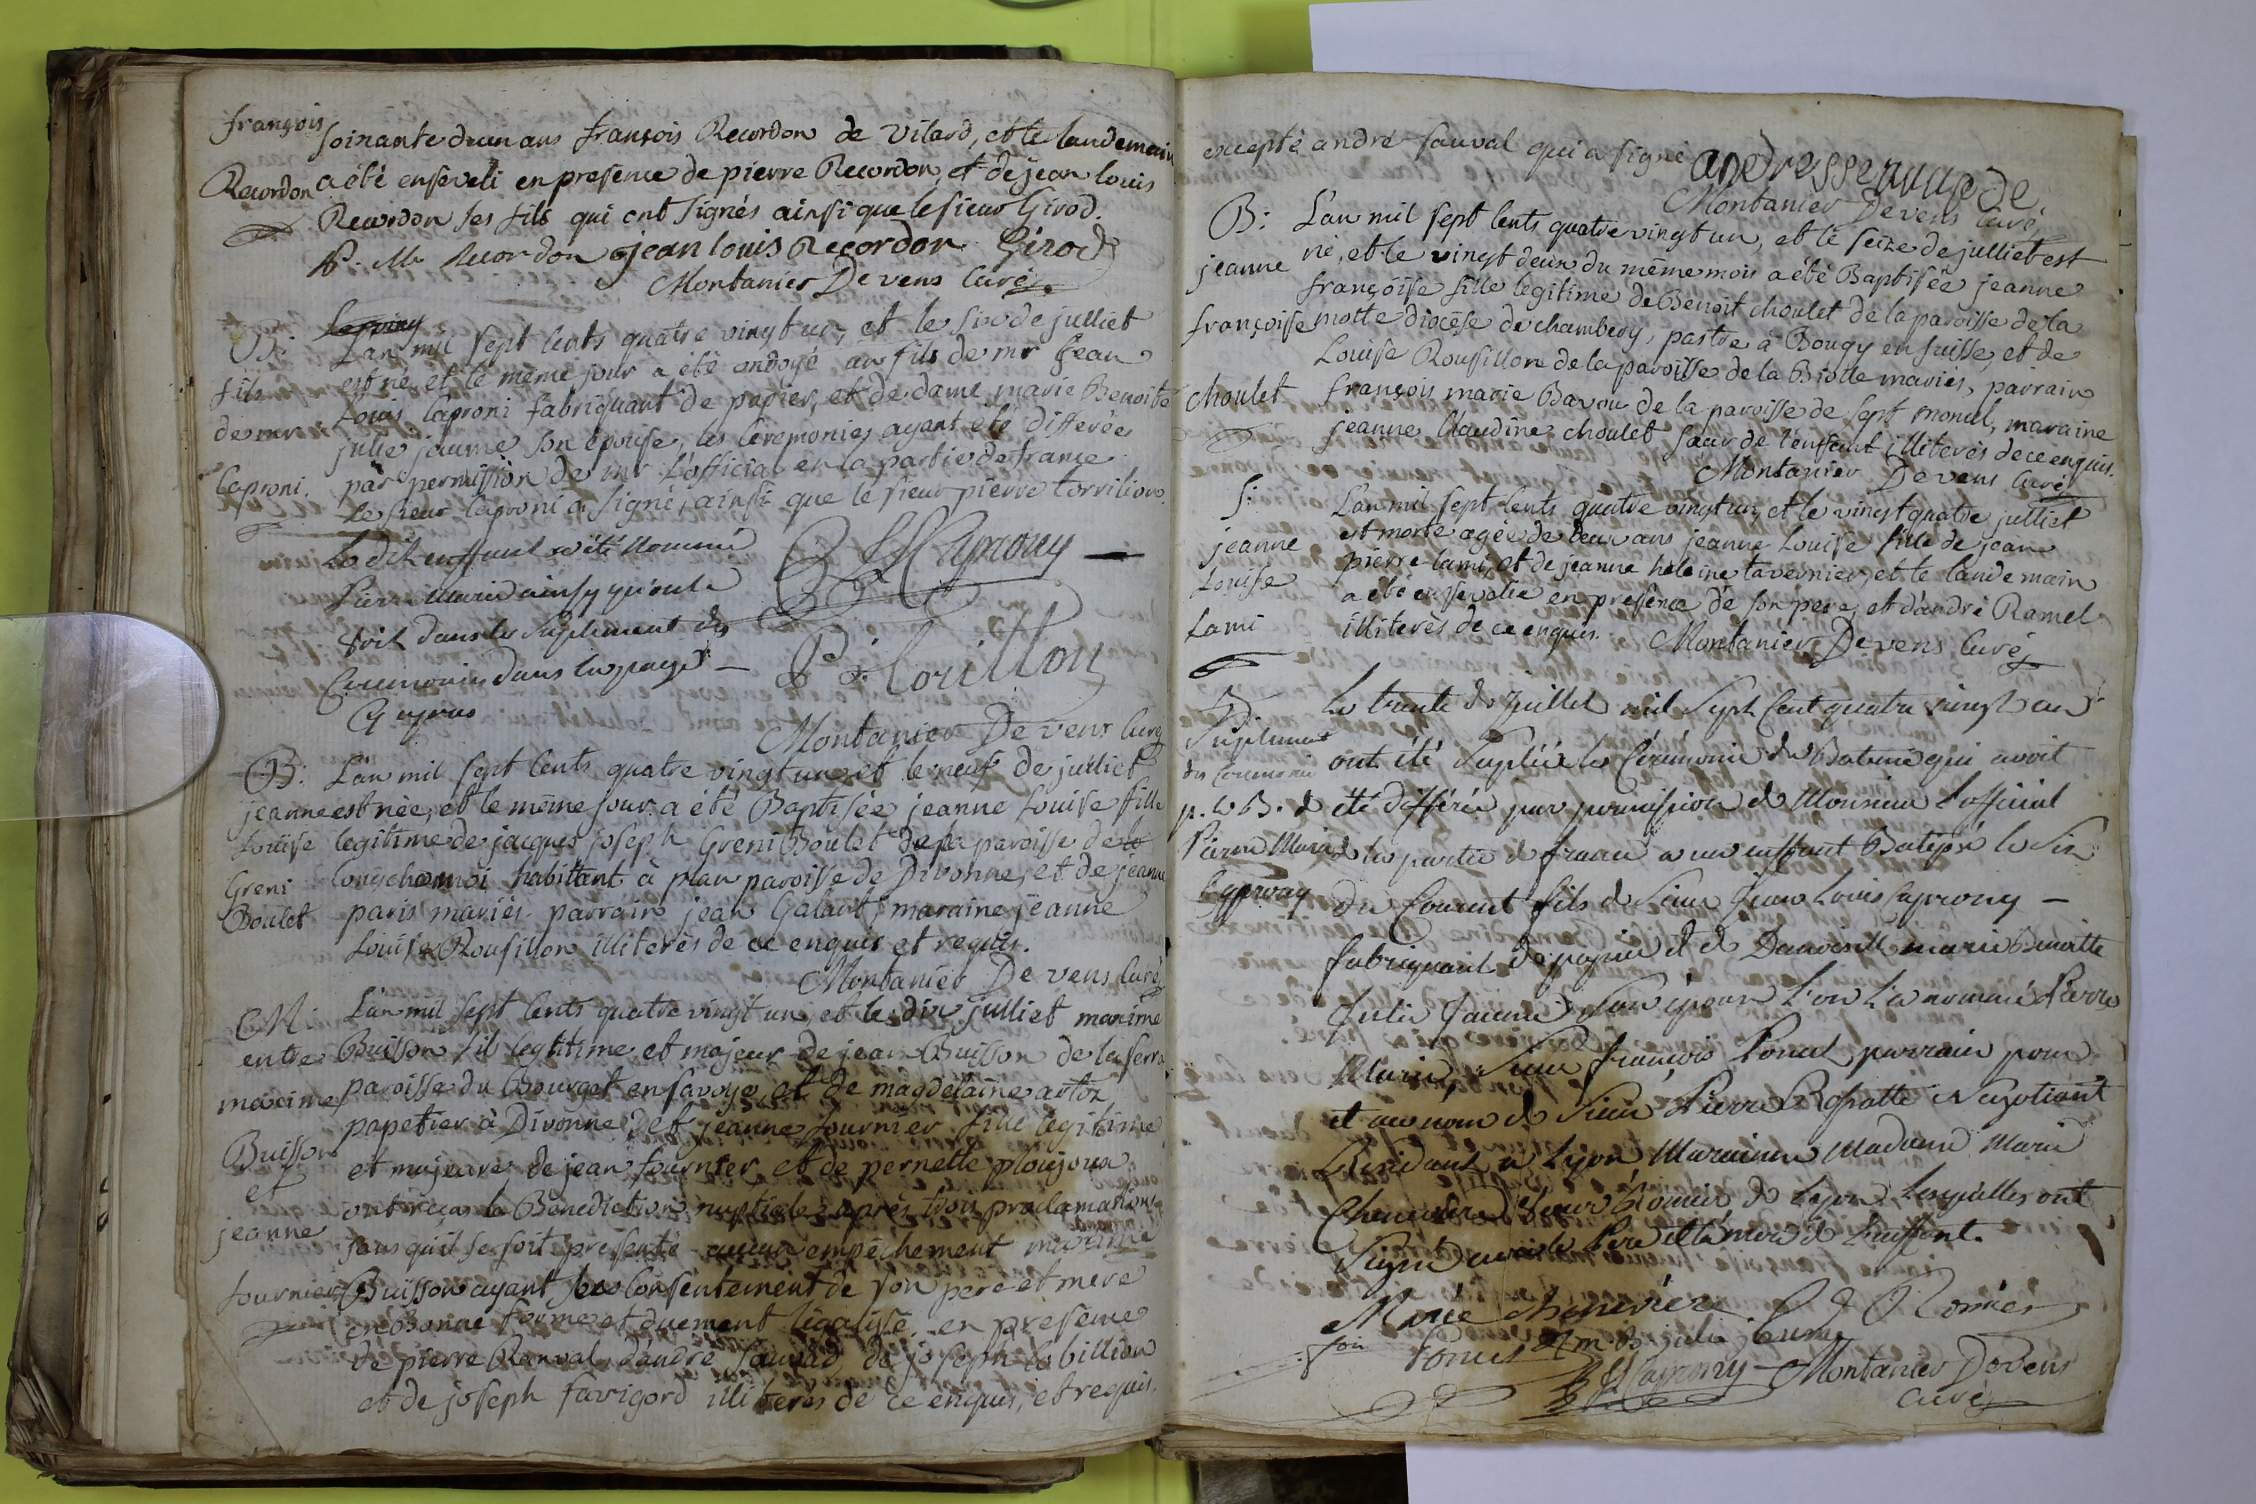 françois
Recordon
soixante deux ans françois Recordon de Vilard, et le landemain
a été enseveli en presence de pierre Recordon, et de jean louis
Recordon ses fils qui ont signés ainsi que le sieur Girod.
P. M. Recordon jean louis Recordon Girod
Montanier Devens Curé
B:
fils
de mr
Caproni.
L'an mil sept cents quatre vingt un, et le six de julliet
est né, et le même jour a été ondoyé un fils de mr jean
Louis Caproni fabriquant de papier, et de dame marie Benoite
julie jaume son épouse, les ceremonies ayant été differées
par permission de mr L'official en la partie de france
le sieur Caproni a signé, ainsi que le sieur pierre torvilion.
Le dit enffant a été nommé
Pierre Marie ainsy qu'on le
voit dans les suplement des
Ceremonies dans la page
Cy apres
Montanier Devens Curé
B:
jeanne
Louise
Greni
Boulet
L'an mil sept cents quatre vingt un et le neuf de julliet
est née, et le même jour a été Baptisée jeanne Louise fille
legitime de jacques joseph Greni Boulet de la paroisse de
longchamoi habitant à plan paroisse de Divonne, et de jeanne
paris mariés. parrain jean Galant, maraine jeanne
Louise Rousillon illiterés de ce enquis et requis.
Montanier Devens Curé
M:
entre
maxime
Buisson
et
jeanne
fournier
L'an mil sept cents quatre vingt un et le dix julliet maxime
Buisson fil legitime et majeur de jean Buisson de la serra
paroisse du Bourget en savoye, et de magdelaine artox
papetier à Divonne; et jeanne fournier fille legitime
et majeure de jean fournier et de pernette ploujoux
ont reçus la Benediction nuptiale après trois proclamations
sans qu'il se soit presenté aucun empêchement maxime
Buisson ayant le Consentement de son pere et mere
en Bonne forme et duement légalisé. en presence
de pierre Ranval, d'andré sauvad, de joseph
et de joseph favigord illiterés de ce enquis, et requis.
excepté andré sauval qui a signé
Montanier Devens Curé
B:
jeanne
françoise
choulet
L'an mil sept cents quatre vingt un, et le seize de julliet est
né, et le vingt deux du même mois a été Baptisée jeanne
françoise fille legitime de Benoit choulet de la paroisse de la
motte diocèse de chambery, pastre à Bougy en suisse, et de
Louise Rousillon de la paroisse de la Biolle mariés, parrain
françois marie Bavou de la paroisse de sept moncel, maraine
jeanne Claudine choulet sœur de l'enfant illiterés de ce enquis.
Montanier Devens Curé
S:
jeanne
Louise
Lami
L'an mil sept cents quatre vingt un, et le vingt quatre julliet
est morte agée de deux ans jeanne Louise fille de jean
pierre Lami, et de jeanne heleine tavernier, et le landemain
a été ensevelie en presence de son pere, et d'andré Ramel
illiterés de ce enquis. Montanier Devens Curé
Suplement
des Ceremonie
p. le B. de
Pierre Marie
Capprony
Le trente de Juillet mil Sept Cent quatre vingt un
ont été Suplée les Cérémonie du Bateme qui avoit
été différée par permission de Monsieur L'official
de la partie de france a un enffant Batisé le Six
du Courent fils de Sieur Jean Louis Caprony —
fabriquant de papier et de Damoiselle marie Benoitte
Julie Jaume Son épouse L'on L'a nommé Pierre
Marie, Sieur françois Ponut parrain pour
et au nom de Sieur Pierre Negotiant
Residant a Lyon Marainne Madame Marie
Chenevière Romier de Lyon Lesquelles ont
Signé avec le Pere et la mere de L'enffant.
Marie chenevière Romier
Ponut m B julie jaume
Caprony Montanier Devens
curé